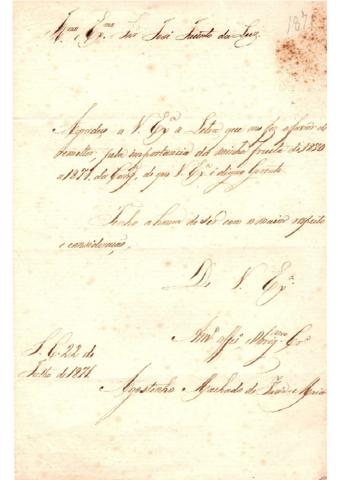 1871
Illmo Exmo Snr José Justino da Luz
Agradeço a V. Exª a Letra que me fez o favor de
remetter, pela importancia da minha de 1870
a 1871, da Comp. de que V. Exª é digno Gerente.
Tenho a honra de ser com o maior respeito
e consideração,
De V. Exª
Amº Obrigmo Crº
S. C. 22 de
de 1871.
Agostinho Machado de Faria e Maia